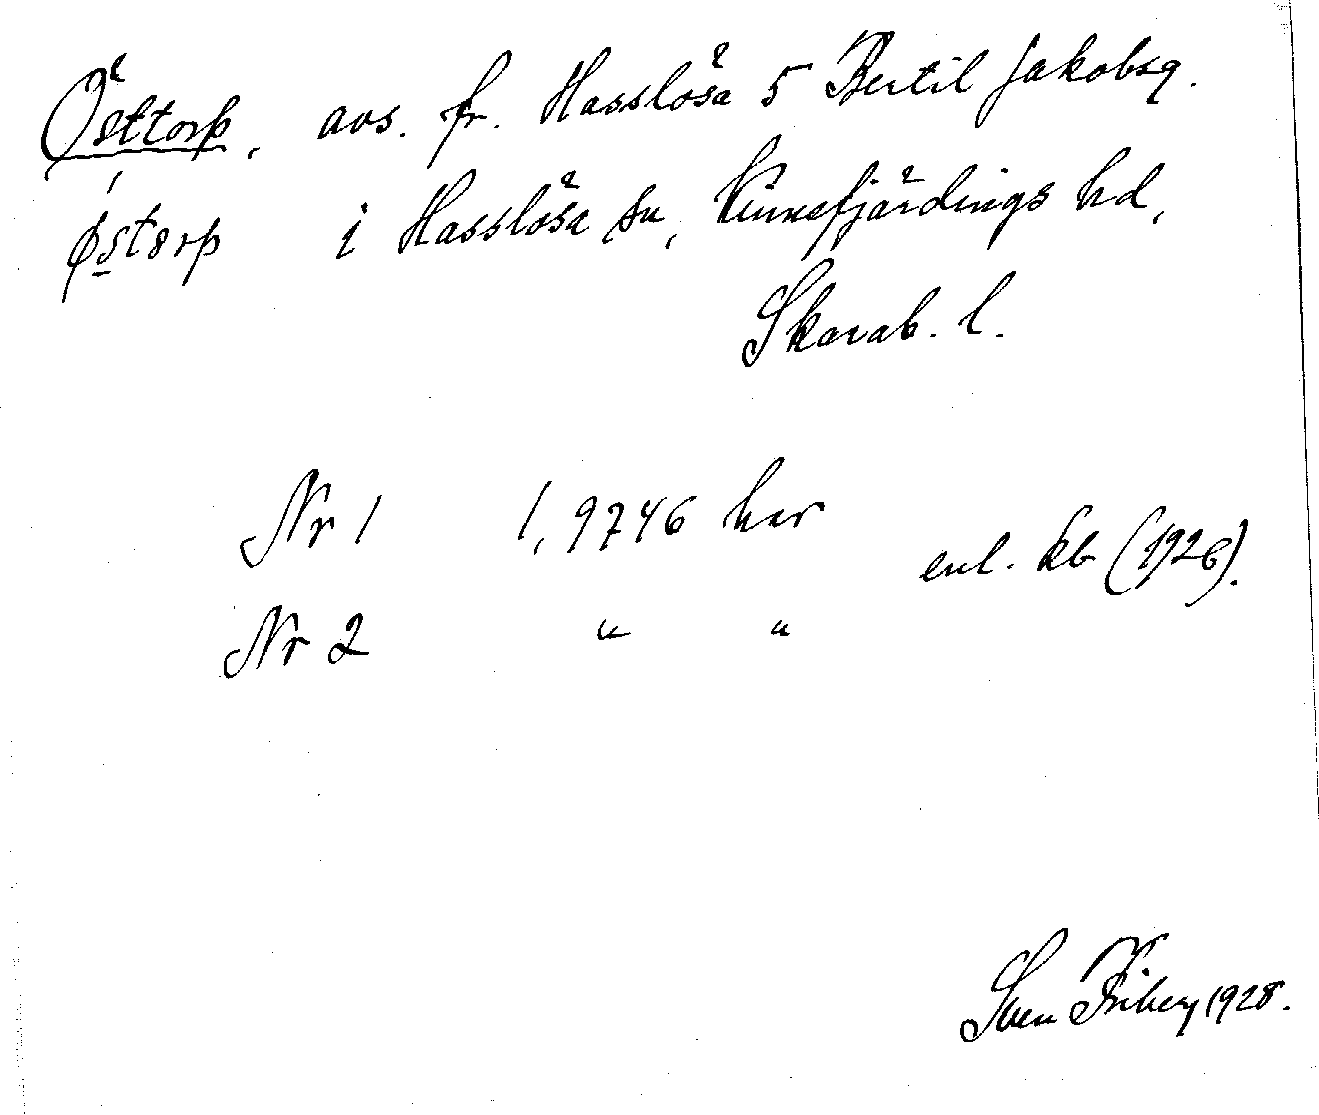 Östtorp, avs. fr. Hasslösa 5 Bertil Jakobsg.
østorp i Hasslösa sn, Kinnefjärdings hd,
Skarab. l.
Nr 1 1,9746 har
enl. kb (1926).
Nr 2 " "
Sven Friberg 1928.